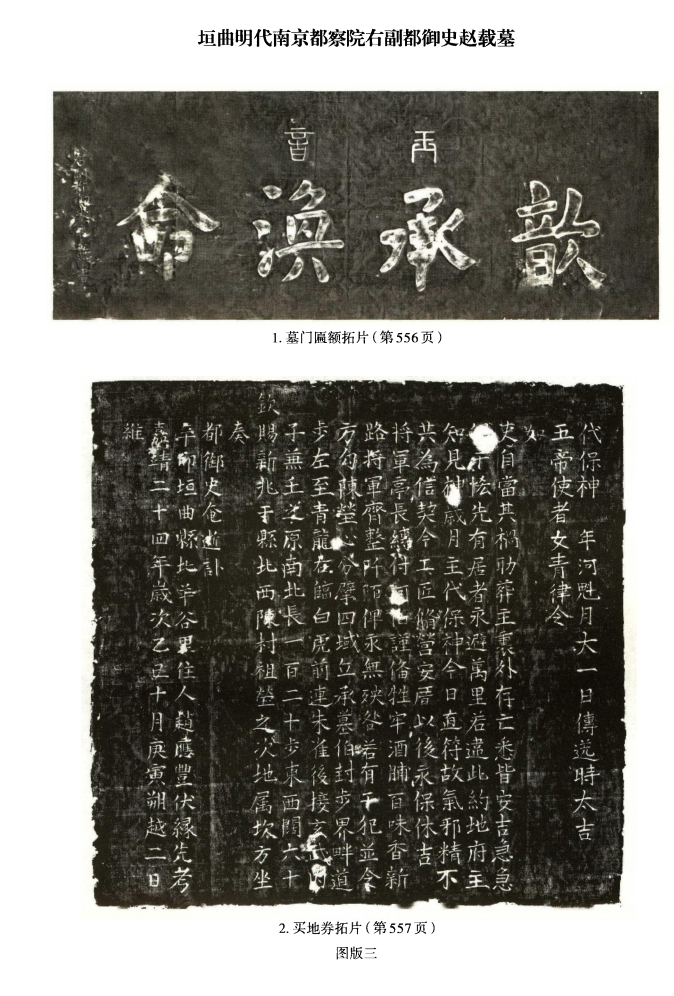 垣曲明代南京都察院右副都御史赵载墓
歆承渙命
1. 墓门匾额拓片（第556页）
維
嘉靖二十四年歲次乙巳十月庚寅朔越二日
辛卯垣曲縣北羊谷里住人趙應豐伏緣先考
都御史奄逝訃
奏
欽賜新兆于縣北西陳村祖塋之次地属坎方坐
子兼壬之原南北長一百二十步東西闊六十
步左至青龍右臨白虎前連朱雀後接玄武內
方勾陳塋心分擘四域丘承墓伯封步界畔道
路將軍齊整阡陌俾永無殃咎若有干犯並令
將軍亭長縛付河伯謹俻牲牢酒脯百味香新
共為信契今工匠脩營安厝以後永保休吉
知見神歲月主代保神今日直符故氣邪精不
干恡先有居者永避萬里若違此約地府主
吏自當其禍助葬主裏外存亡悉皆安吉急急
如
五帝使者女青律令
代保神　年河魁月大一日傳送時太吉
2. 买地券拓片（第557页）
图版三